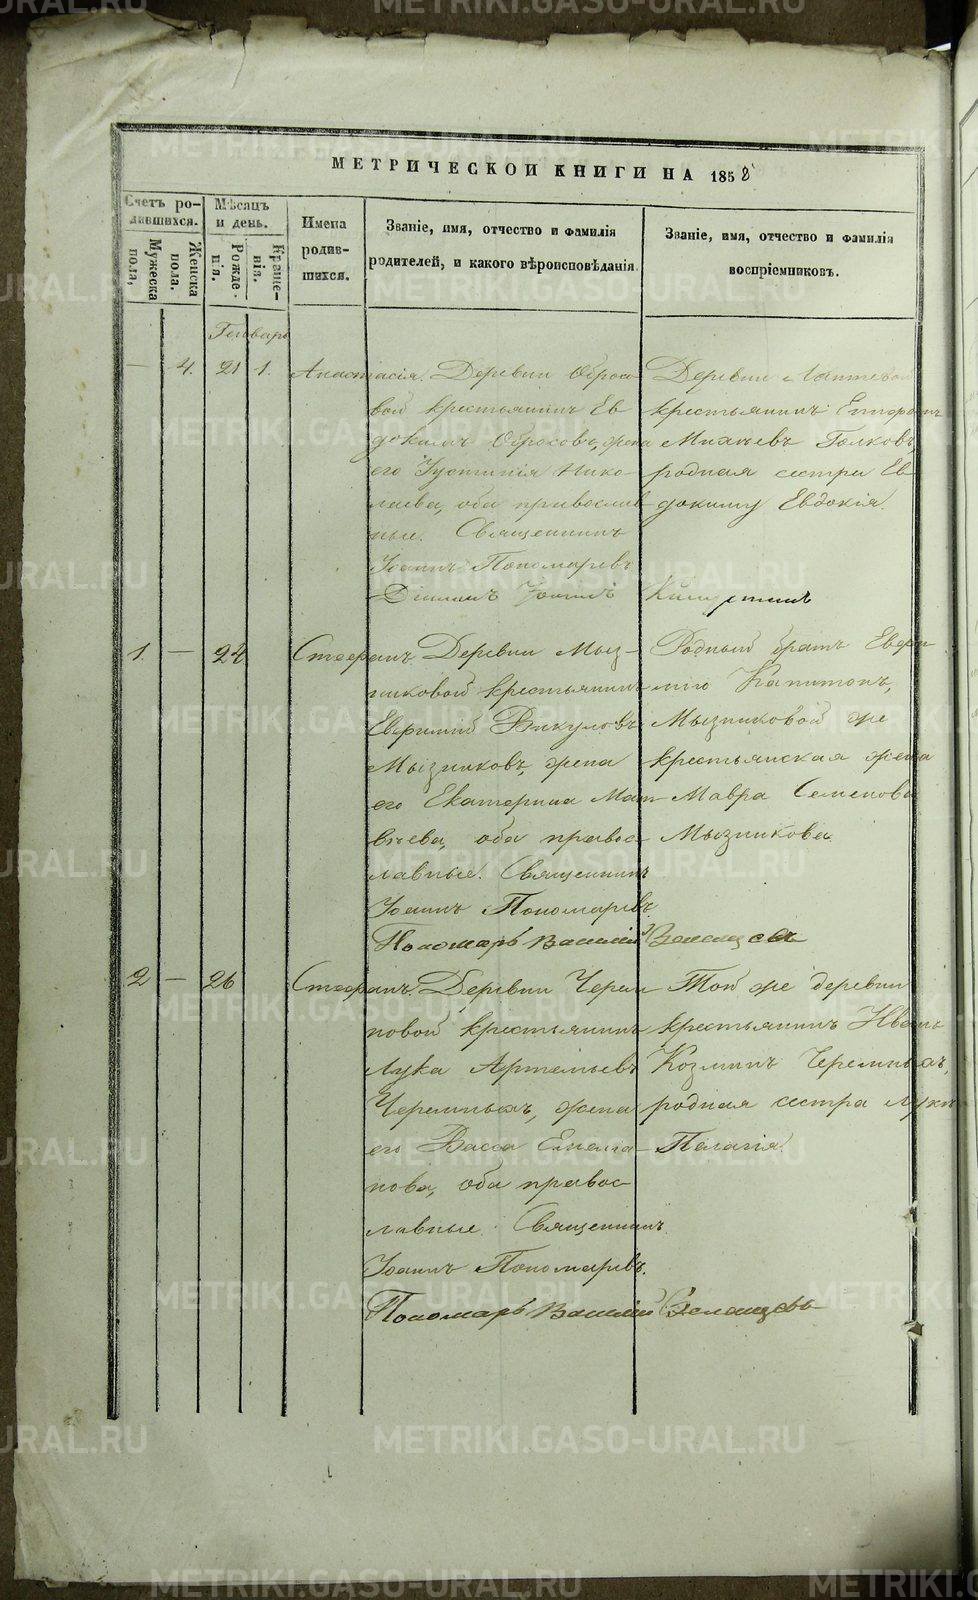 МЕТРИЧЕСКОЙ КНИГИ НА 1858
Счетъ ро-
дившихся.
Мужеска
пола,
Женска
пола.
Мѣсяцъ
и день.
Рожде-
нія.
Креще-
нія.
Имена
родив-
шихся.
Званіе, имя, отчество и фамилія
родителей, и какого вѣроисповѣданія.
Званіе, имя, отчество и фамилія
воспріемниковъ.
Генварь
— 4. 21 1. Анастасія. Деревни Оброс
вой крестьянинъ Ев
докимъ Обросовъ, жена
его Іустинія Нико-
лаева, оба православ
ные. Священникъ
Іоаннъ Пономаревъ
Деревни Лаптевой
крестьянинъ
Михѣевъ
родная сестра Ев
докиму Евдокія.
1. — 24 Стефанъ. Деревни Мыз-
никовой крестьянинъ
Евфимій Викуловъ
Мызниковъ, жена
его Екатерина Мат
вѣева, оба правос-
лавные. Священникъ
Іоаннъ Пономаревъ.
Пономарь Василій
Родный братъ Евфи-
мію Капитонъ,
Мызниковой же
крестьянская жена
Мавра Семенова
Мызникова.
2 — 26 Стефанъ. Деревни Черем
новой крестьянинъ
Лука Артемьевъ
Черемныхъ, жена
его Васса Емелія-
нова, оба правос-
лавные. Священникъ
Іоаннъ Пономаревъ.
Пономарь Василій
Той же деревни
крестьянинъ Иванъ
Козминъ Черемныхъ,
родная сестра Луки
Пелагія.
METRIKI.GASO-URAL.RU